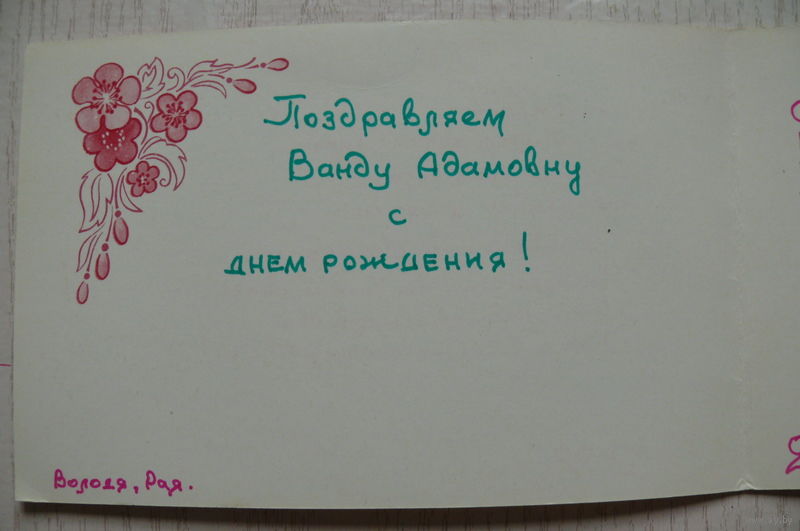 Поздравляем
Ванду Адамовну
с
днем рождения!
Володя, Рая.